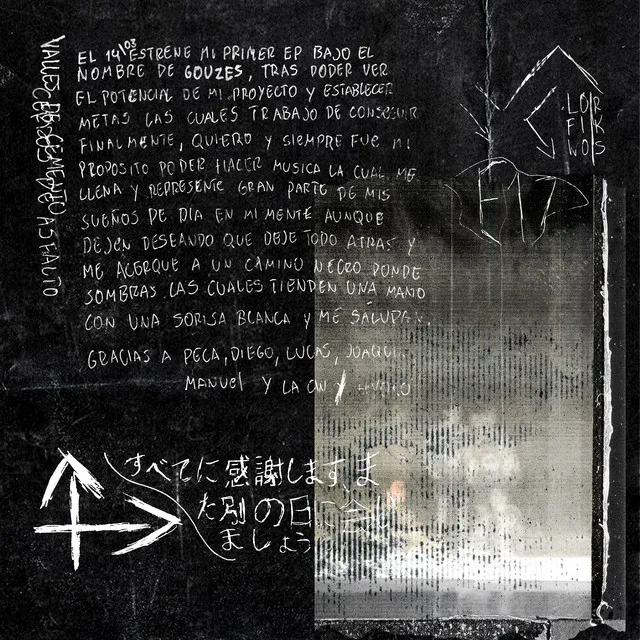 EL 14\03 ESTRENE MI PRIMER EP BAJO EL
NOMBRE DE GOUZES, TRAS PODER VER
EL POTENCIAL DE MI PROYECTO Y ESTABLECER
METAS LAS CUALES TRABAJO DE CONSEGUIR
FINALMENTE, QUIERO Y SIEMPRE FUE MI
PROPOSITO PODER HACER MUSICA LA CUAL ME
LLENA Y REPRESENTE GRAN PARTE DE MIS
SUEÑOS DE DIA EN MI MENTE AUNQUE
DEJEN DESEANDO QUE DEJE TODO ATRAS Y
ME ACERQUE A UN CAMINO NEGRO DONDE
SOMBRAS LAS CUALES TIENDEN UNA MANO
CON UNA SORISA BLANCA Y ME SALUDAN.
GRACIAS A PECA, DIEGO, LUCAS, JOAQUI
MANUEL Y LA
DE CEMENTO
ASFALTO
LOR
FIK
WOS
すべてに感謝します、ま
た別の日に会い
ましょう